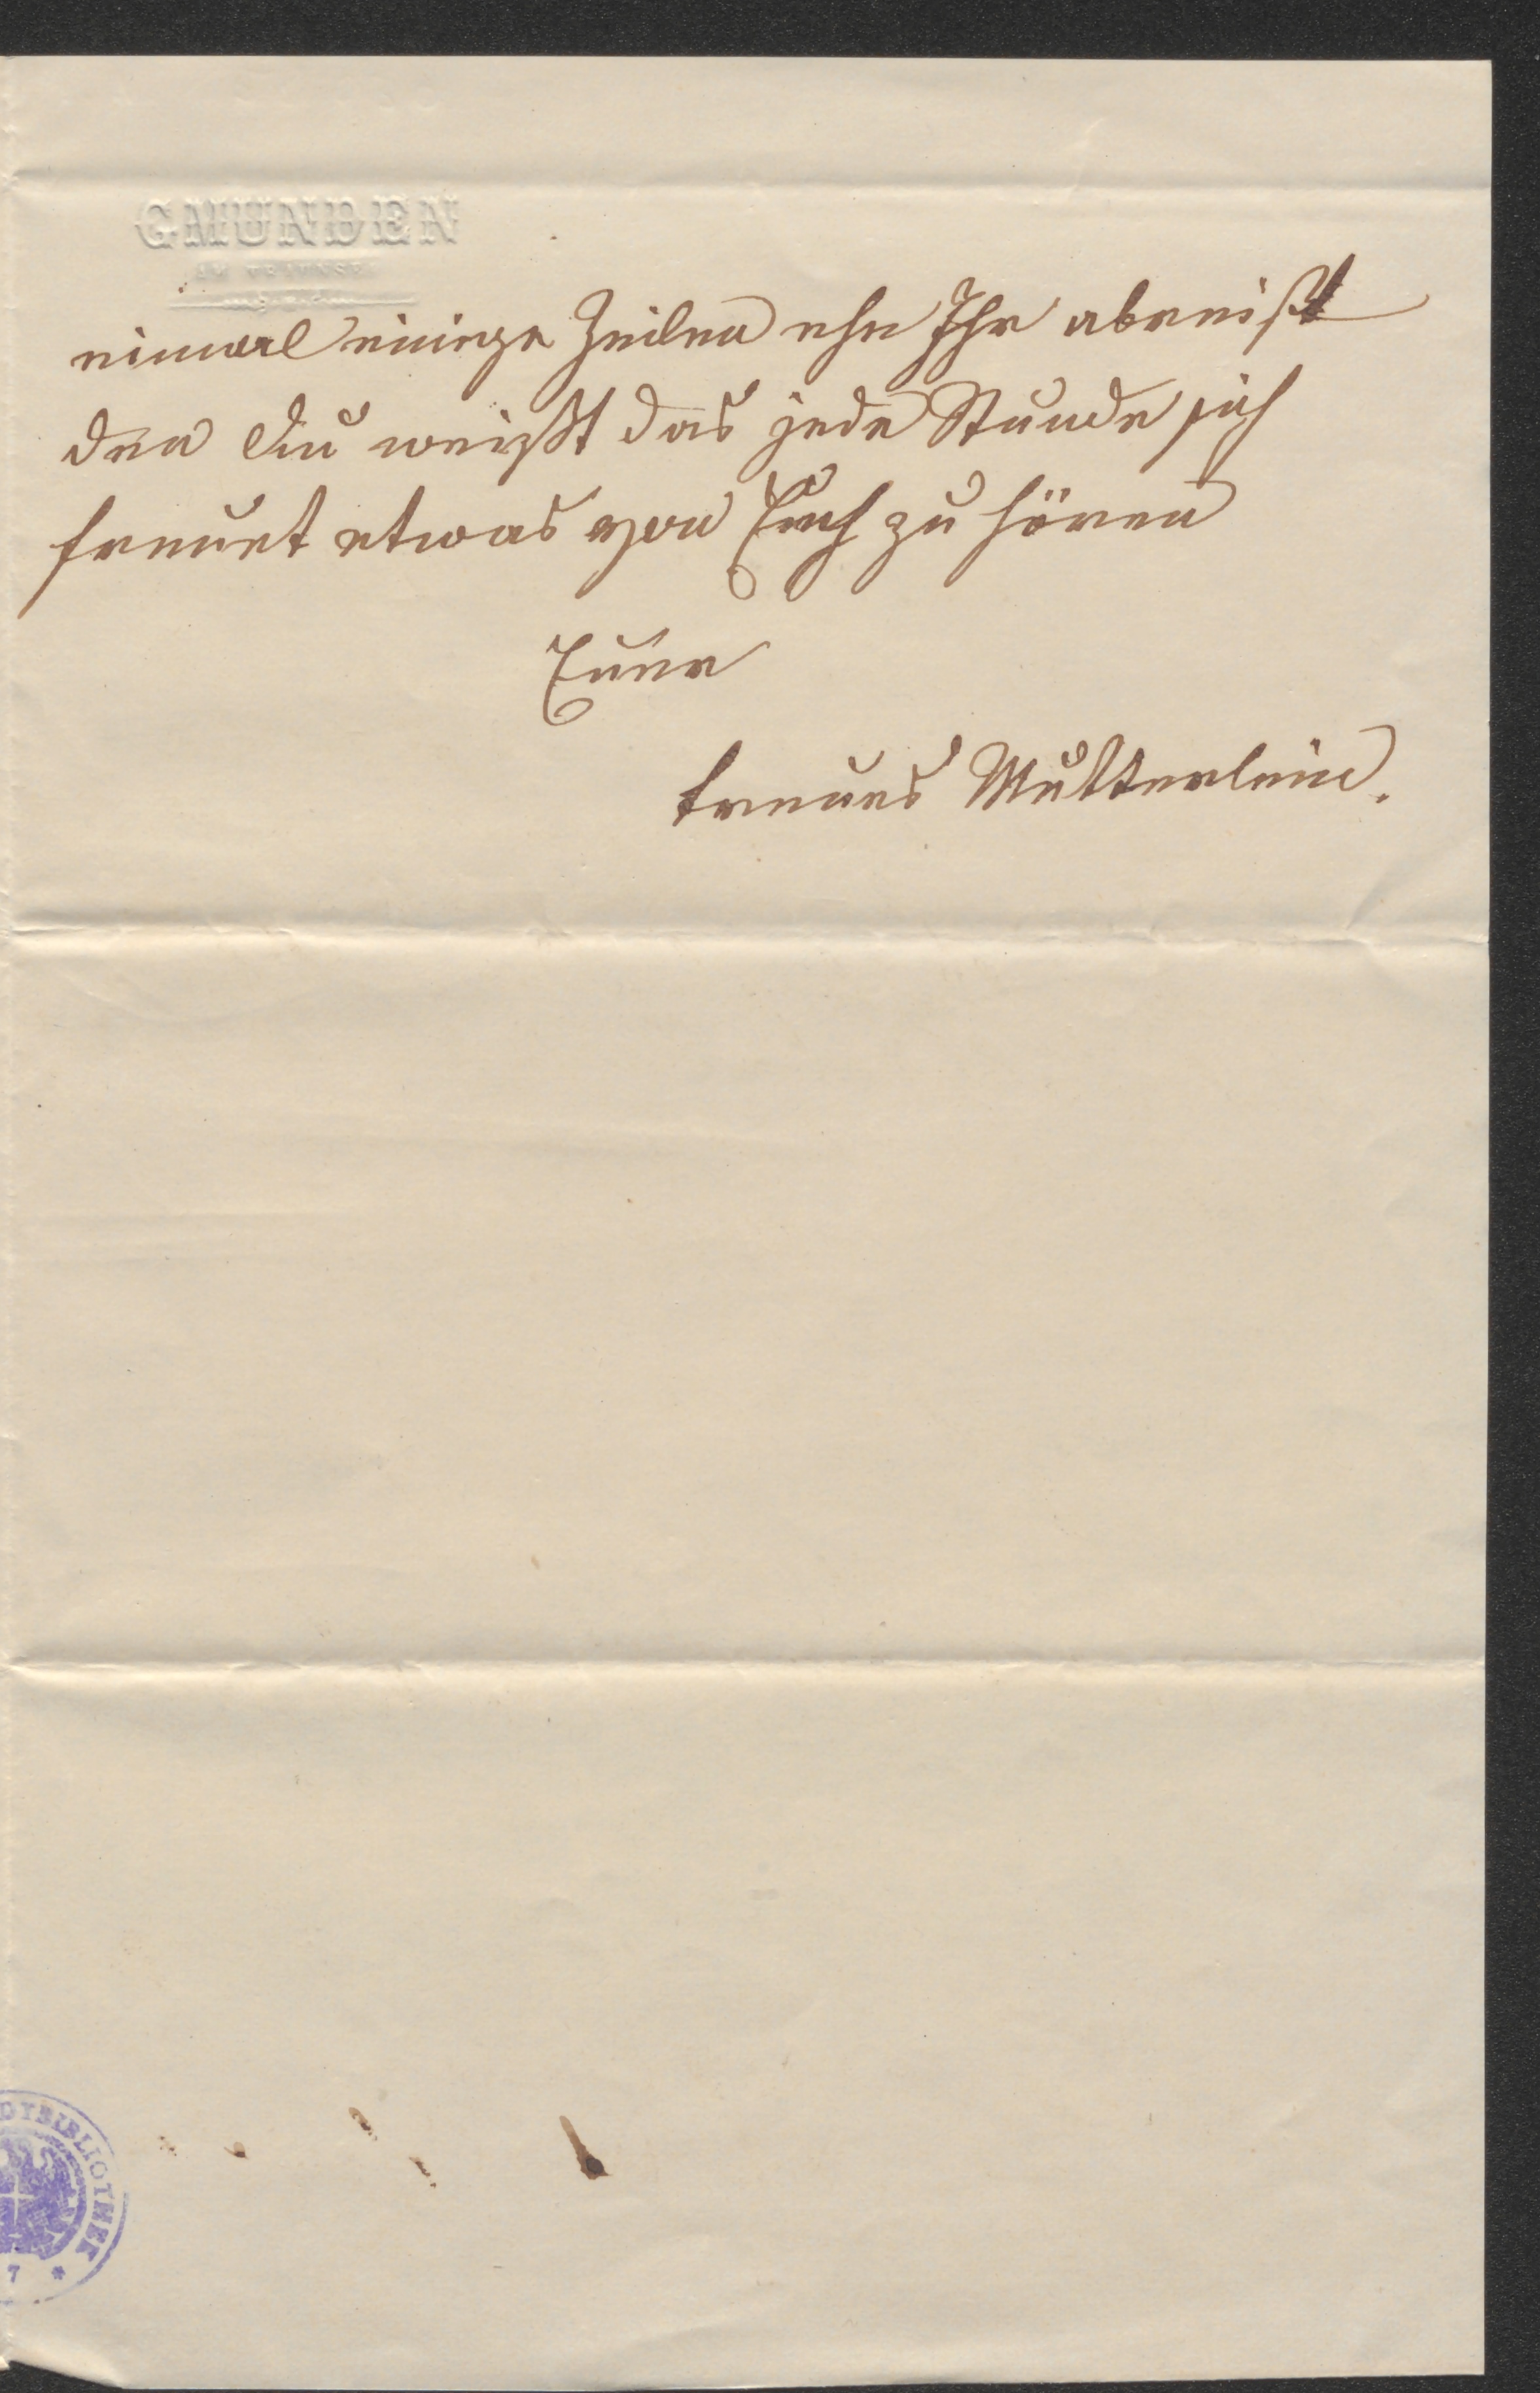 GMUNDEN
AM TRAUNSEE
einmal einige Zeilen ehe Ihr abreißt
den Du weißt das jede Stunde sich
freuet etwas von Euch zu hören
Euer
treues Mutterlein.
DTBIBLIOTHEK
7 *